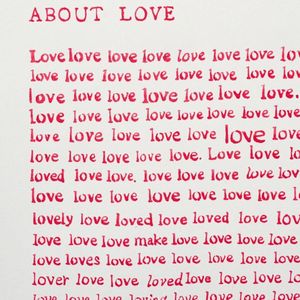 ABOUT LOVE
Love love love love love love love
love love love love love love love
love love love love love love love.
love love love love love love love
love love love love love love love
love love love love love. Love love
loved love love. love love love love
love love love love love love love
lovely love loved love loved love
love love love make love love love love
love loves love love love love love
lover love love loved love love love
love love love loving love love